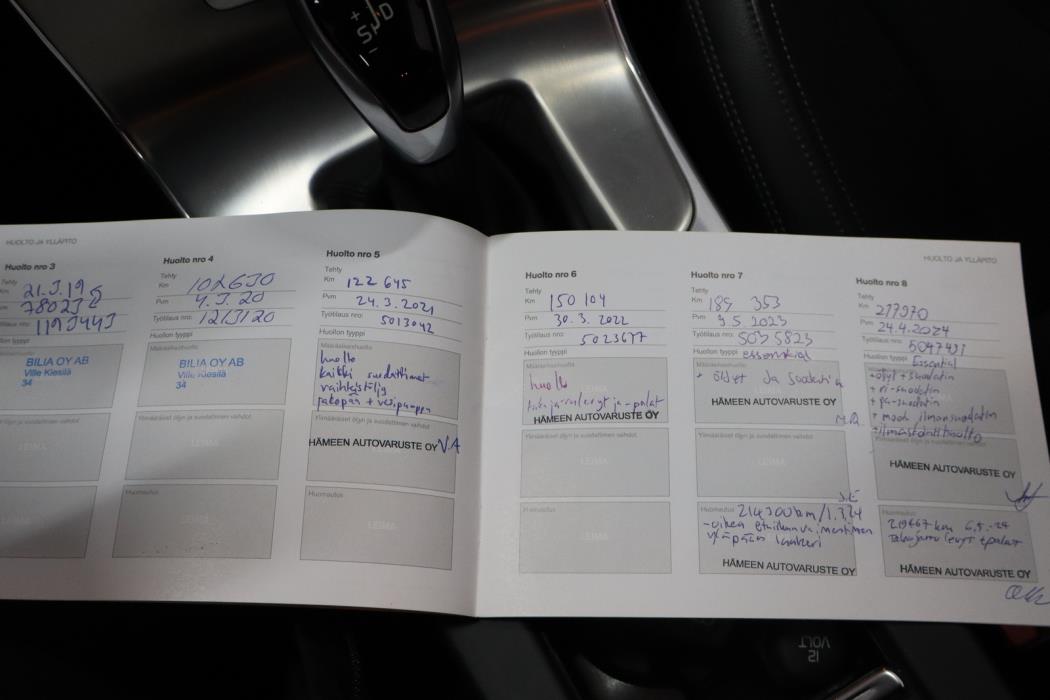 S D
HUOLTO JA YLLÄPITO
Huolto nro 3
Tehty
Km 21.5.19
Pvm 78023
Työtilaus nro:
BILIA OY AB
Ville Kiesilä
34
Huolto nro 4
Tehty
Km 102650
Pvm 4.5.20
Työtilaus nro:
Määräaikaishuolto
BILIA OY AB
Ville Kiesilä
34
Ylimääräiset öljyn ja suodattimen vaihdot
LEIMA
Huomautus
LEIMA
Huolto nro 5
Tehty
Km 122 645
Pvm 24.3.2021
Työtilaus nro: 5013042
Huollon tyyppi
Määräaikaishuolto
huolto
kaikki suodattimet
vaihteistoöljy
jakopää + vesipumppu
Ylimääräiset öljyn ja suodattimen vaihdot
HÄMEEN AUTOVARUSTE OY VA
Huomautus
LEIMA
HUOLTO JA YLLÄPITO
Huolto nro 6
Tehty
Km 150 104
Pvm 30.3.2022
Työtilaus nro: 5023677
Huollon tyyppi
Määräaikaishuolto
huolto
takajarrulevyt ja -palat
HÄMEEN AUTOVARUSTE OY
Ylimääräiset öljyn ja suodattimen vaihdot
LEIMA
Huomautus
LEIMA
Huolto nro 7
Tehty
Km 185 353
Pvm 9.5.2023
Työtilaus nro: 5035823
Huollon tyyppi essential
Määräaikaishuolto
+ öljyt ja suodatin
HÄMEEN AUTOVARUSTE OY
Ylimääräiset öljyn ja suodattimen vaihdot
LEIMA
Huomautus 214300km/1.3.24
-oikea etuiskunvaimentimen
yläpään laakeri
HÄMEEN AUTOVARUSTE OY
Huolto nro 8
Tehty
Km 217970
Pvm 24.4.2024
Työtilaus nro:
Huollon tyyppi Essential
+öljyt + suodatin
+ ri-suodatin
+ pa-suodatin
+ moott ilmansuodatin
+ilmastointihuolto
HÄMEEN AUTOVARUSTE OY
Huomautus
219467 km 6.5.-24
Takajarru levyt + palat
HÄMEEN AUTOVARUSTE OY
12
VOLT